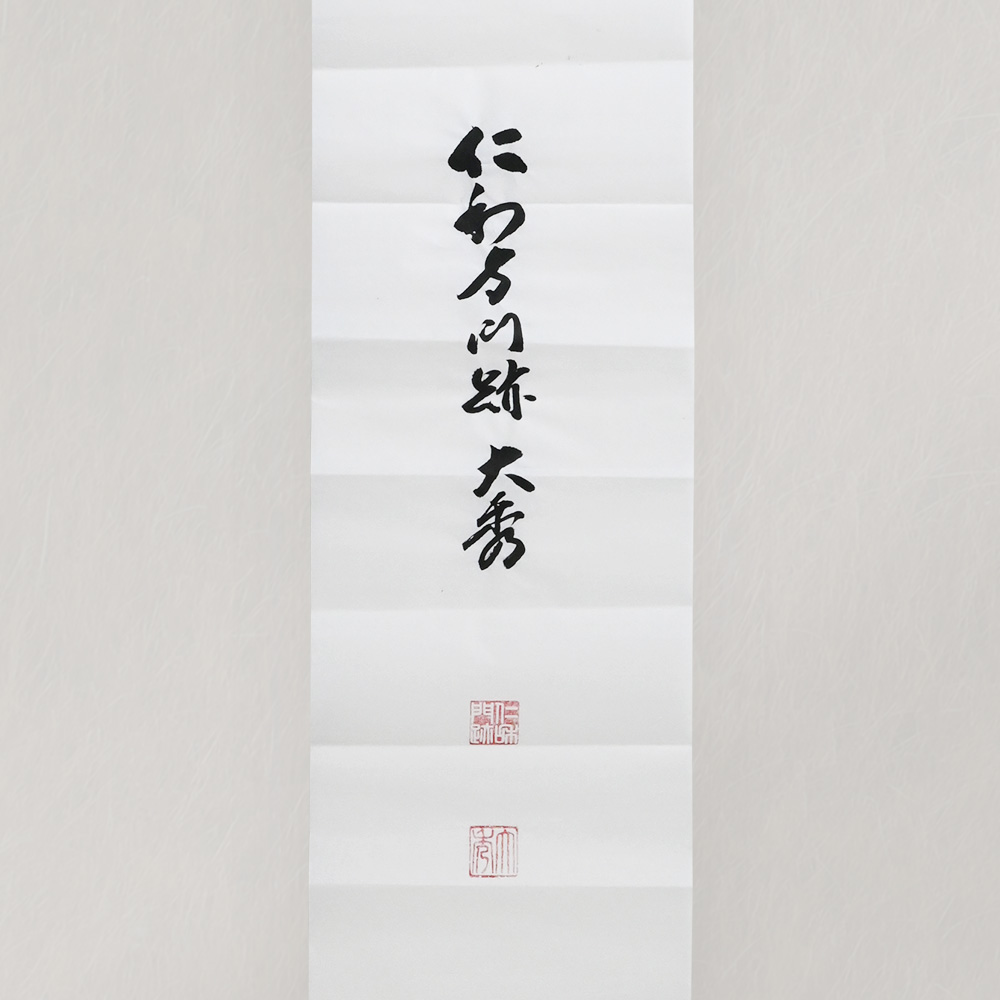 仁和寺門跡 大秀
仁和
門跡
大秀